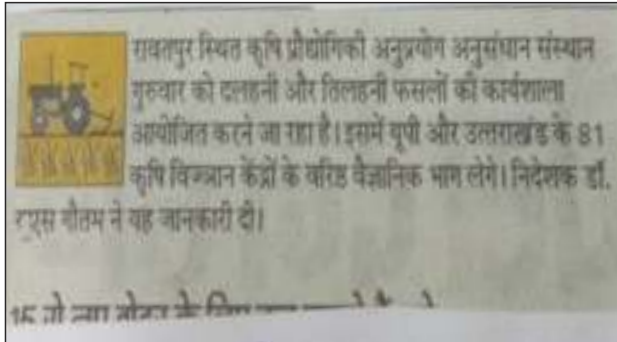 रावतपुर स्थित कृषि प्रौद्योगिकी अनुप्रयोग अनुसंधान संस्थान
गुरुवार को दलहनी और तिलहनी फसलों की कार्यशाला
आयोजित करने जा रहा है। इसमें यूपी और उत्तराखंड के 81
कृषि विज्ञान केंद्रों के वरिष्ठ वैज्ञानिक भाग लेंगे। निदेशक डॉ.
गौतम ने यह जानकारी दी।